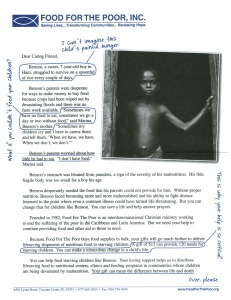 FOOD FOR THE POOR, INC.
Saving Lives... Transforming Communities... Renewing Hope
I can't imagine this
child's painful hunger
Dear Caring Friend,
Benson, a sweet, 7-year-old boy in
Haiti, struggled to survive on a spoonful
of rice every couple of days.
Benson's parents were desperate
for ways to make money to buy food
because crops had been wiped out by
devastating floods and there was no
farm work available. "Sometimes we
have no food to eat, sometimes we go a
day or two without food," said Marina,
Benson's mother. "Sometimes my
children cry and I have to caress them
and tell them, 'When we have, we have.
When we don't, we don't.'"
Benson's parents worried about how
little he had to eat. "I don't have food,"
Marina said.
Benson's stomach was bloated from parasites, a sign of the severity of his malnutrition. His thin,
fragile body was too small for a boy his age.
Benson desperately needed the food that his parents could not provide for him. Without proper
nutrition, Benson faced becoming more and more malnourished and his ability to fight disease
lessened to the point where even a common illness could have turned life threatening. But you can
change that for children like Benson. You can save a life and help answer prayers.
Founded in 1982, Food For The Poor is an interdenominational Christian ministry working
to end the suffering of the poor in the Caribbean and Latin America. But we need your help to
continue providing food and other aid to those in need.
Because Food For The Poor buys food supplies in bulk, your gifts will go much farther to deliver
lifesaving shipments of nutritious food to starving children.
You can make a miraculous change in a child's life.
You can help feed starving children like Benson. Your loving support helps us to distribute
lifesaving food to nutritional centers, clinics and feeding programs in communities where children
are being devastated by malnutrition. Your gift can mean the difference between life and death.
over, please
www.FoodForThePoor.org
what if you couldn't feed your children?
This is why your help is so critical!